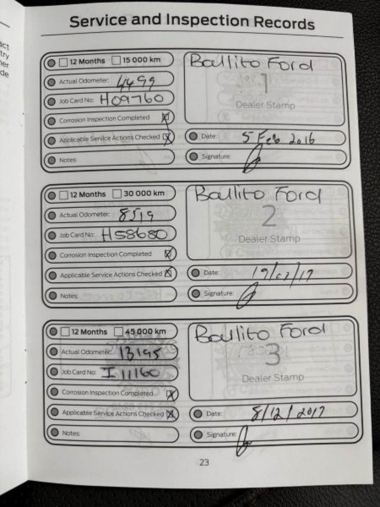 Service and Inspection Records
12 Months 15 000 km
Ballito Ford
1
Dealer Stamp
Actual Odometer: 4499
Job Card No: H09760
Corrosion Inspection Completed X
Applicable Service Actions Checked X
Date: 5 Feb 2016
Notes:
Signature:
12 Months 30 000 km
Ballito Ford
2
Dealer Stamp
Actual Odometer: 8519
Job Card No: H58680
Corrosion Inspection Completed X
Applicable Service Actions Checked X
Date:
Notes:
Signature:
12 Months 45 000 km
Ballito Ford
3
Dealer Stamp
Actual Odometer: 13195
Job Card No: I11160
Corrosion Inspection Completed X
Applicable Service Actions Checked X
Date: 8/12/2017
Notes:
Signature:
23